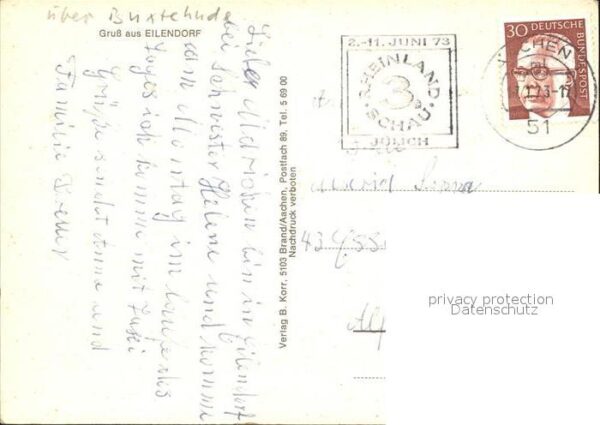 über Buxtehude
Gruß aus EILENDORF
Liebe Mariosen bin in Eilendorf
bei Schwester Helene und komme
am Montag im laufe des
Tages ich komme mit Taxi
Grüße sendet Anna und
Familie
Verlag B. Korr. 5103 Brand/Aachen, Postfach 89, Tel. 5 69 00
Nachdruck verboten
2.-11. JUNI 73
RHEINLAND
3.
SCHAU
JÜLICH
AACHEN
51
30 DEUTSCHE
BUNDESPOST
43 Essen
privacy protection
Datenschutz